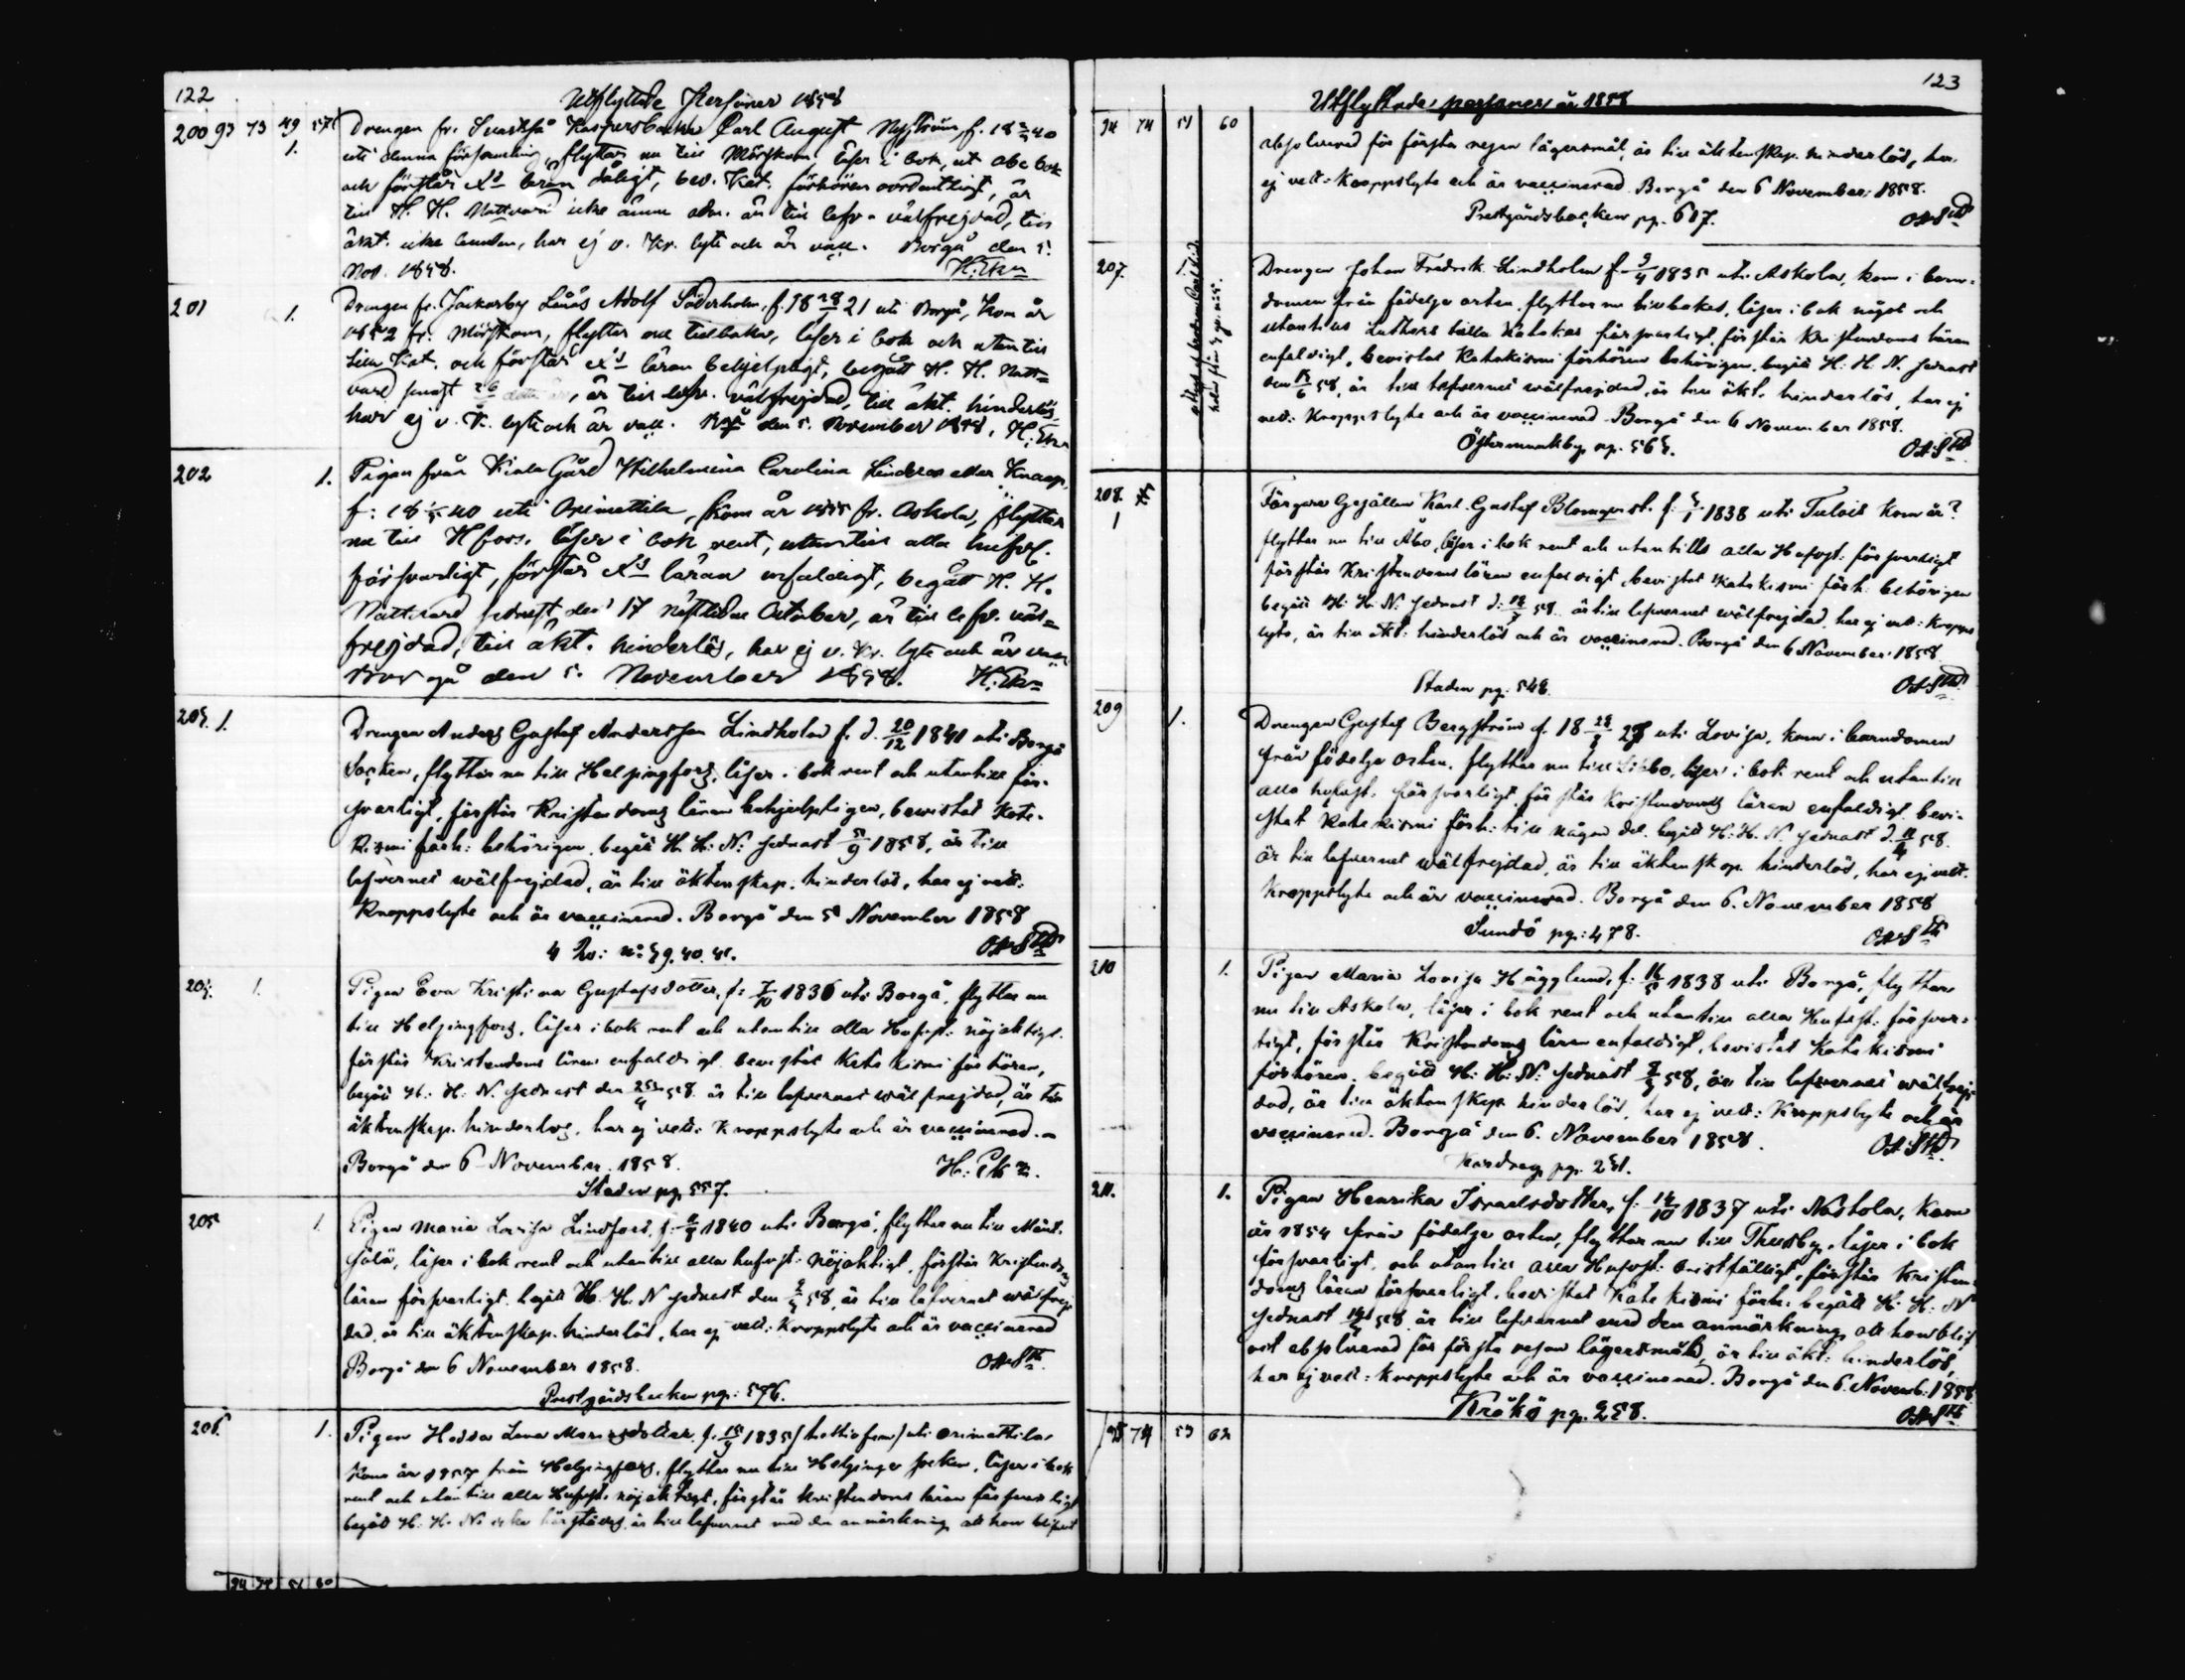 122
Utflyttade Personer 1858
200 93 73 49 57
1.
Drengen fr. Svartså Kaspersbacka Carl August Nyström, f. 18 40
uti denna församling, flyttar nu till Mörskom, läser i bok, ut. abc bok
och förstår X:s läran dåligt, bev. Kat. förhören oordentligt, är
till H. H. Nattvard icke ännu adm. är till lefv. välfrejdad, till
äkt. icke bunden, har ej v. Kr. lyte och är vacc. Borgå den 5.
Nov. 1858. H. Ekn
201 1.
Drengen fr. Jackarby Linås Adolf Söderholm, f. 18 21 uti Borgå, Kom år
1852 fr. Mörskom, flyttar nu tillbaka, läser i bok och utantill
Lilla Kat. och förstår X:s läran behjelpligt, begått H. H. Natt=
vard senast 26, är till lefv. välfrejdad, till äkt. hinderlös,
har ej v. K. lyte och är vacc. Borgå den 5. November 1858. H. Ekn
202 1.
Pigan från Kiala Gård Wilhelmina Carolina Linderos eller Knaap,
f: 18 40 uti Orimattila, Kom år 1855 fr. Askola, flyttar
nu till Hfors. läser i bok rent, utantill alla hufst.
försvarligt, förstår X:s läran enfaldigt, begått H. H.
Nattvard sednast den 17 nästledne October, är till lefv. väl=
frejdad, till äkt. hinderlös, har ej v. Kr. lyte och är vacc
Borgå den 5. November 1858. H. Ekn
203. 1.
Drengen Anders Gustaf Andersson Lindholm f. d. 20/12 1841 uti Borgå
Socken, flyttar nu till Helsingfors, läser i bok rent och utantill för-
svarligt, förstår Kristendoms läran behjelpligen, bevistat Kate-
kismi förh: behörigen, begått H. H: N: sednast 1858, är till
lefvernet wälfrejdad, är till äktenskap. hinderlös, har ej vett:
Kroppslyte och är vaccinerad. Borgå den 5 November 1858
4 Ro: n:o 39. 40. 41.
204. 1.
Pigan Eva Kristina Gustafsdotter, f: 7/10 1836 uti Borgå, flyttar nu
till Helsingfors, läser i bok rent och utantill alla Hufst: nöjaktigt.
förstår Kristendoms läran enfaldigt. bevistat Kate kismi förhören,
begått H: H: N. sednast den 58 är till lefvernet wälfrejdad, är till
äktenskap. hinderlös, har ej vett: Kroppslyte och är vaccinerad.
Borgå den 6 November 1858. H: Ekn.
Staden pg 557.
205 1.
Pigan Maria Lovisa Lindfors, f: 1840 uti Borgå, flyttar nu till Mänt-
sälä, läser i bok rent och utantill alla hufvst: nöjaktigt, förstår Kristendoms
läran försvarligt. begått H. H. N sednast den 58, är till lefvernet wälfrej-
dad, är till äktenskap. hinderlös, har ej vett: Kroppslyte och är vaccinerad
Borgå den 6 November 1858.
Prestgårdsbacken pg: 576.
206. 1.
Pigan Hedda Lena Mariasdotter, f. 1835 (trettiofem) uti Orimattila
Kom år 1857 från Helsingfors, flyttar nu till Helsinge socken, läser i bok
rent och utantill alla Hufst: nöjaktigt, förstår Kristendoms läran försvarligt
begått H. H. N. icke härstädes, är till lefvernet med den anmärkning att hon blifvit
94 74 51 60
123
Utflyttade personer år 1858
94 74 51 60
absolverad för första resan lägersmål, är till äktenskap. hinderlös, har
ej vett: Kroppslyte och är vaccinerad. Borgå den 6 November 1858.
Prestgårdsbacken pg. 607.
207. 1.
Drengen Johan Fredrik Lindholm f. 1835 uti Askola, kom i barn-
domen från födelse orten, flyttar nu tillbaka, läser i bok något och
utantill Luthers lilla Katekes försvarligt, förstår Kristendoms läran
enfaldigt, bevistat Katekismi förhören behörigen, begått H: H. N. sednast
den 58, är till lefvernet wälfrejdad, är till äkt. hinderlös, har ej
vett: Kroppslyte och är vaccinerad. Borgå den 6 November 1858.
Östermunkby pg. 563.
208. 1
Färgare Gesällen Karl Gustaf Blomqvist. f. 1838 uti Tulois Kom år?
flyttar nu till Åbo, läser i bok rent och utantills alla Hufvst: försvarligt
förstår Kristendoms läran enfaldigt, bevistat Katekismi förh: behörigen
begått H: H: N: sednast d: 58. är till lefvernet wälfrejdad, har ej vett: Kropps
lyte, är till äkt: hinderlös och är vaccinerad. Borgå den 6 November 1858.
Staden pg: 548.
209 1.
Drengen Gustaf Bergström f. 18 uti Lovisa, kom i barndomen
från födelse orten, flyttar nu till Sibbo, läser i bok rent och utantill
alla hufvst. försvarligt, förstår Kristendoms läran enfaldigt, bevi-
stat Katekismi förh: till någon del. begått H: H. N sednast d. 58.
är till lefvernet wälfrejdad, är till äktenskap. hinderlös, har ej vett.
Kroppslyte och är vaccinerad. Borgå den 6. November 1858
Sundö pg: 478.
210 1.
Pigan Maria Lovisa Hägglund, f: 1838 uti Borgå, flyttar
nu till Askola, läser i bok rent och utantill alla Hufst: försvar-
ligt, förstår Kristendoms läran enfaldigt, bevistat Katekismi
förhören. begått H: H: N: sednast 58, är till lefvernet wälfrej-
dad, är till äktenskap hinderlös, har ej vett: Kroppslyte och är
vaccinerad. Borgå den 6. November 1858.
pg. 231.
211. 1.
Pigan Henrika Israelsdotter, f: 14/10 1837 uti Nastola, Kom
år 1854 från födelse orten, flyttar nu till Thusby, läser i bok
försvarligt och utantill alla Hufvst: bristfälligt, förstår Kristen-
doms läran försvarligt, bevistat Kate kismi förh: begått H: H: N
sednast 58 är till lefvernet med den anmärkning att hon blif
vit absolverad för första resan lägersmål, är till äkt: hinderlös,
har ej vett: kroppslyte och är vaccinerad. Borgå den 6. Novemb: 1858
Kråkö pg. 258.
74 62